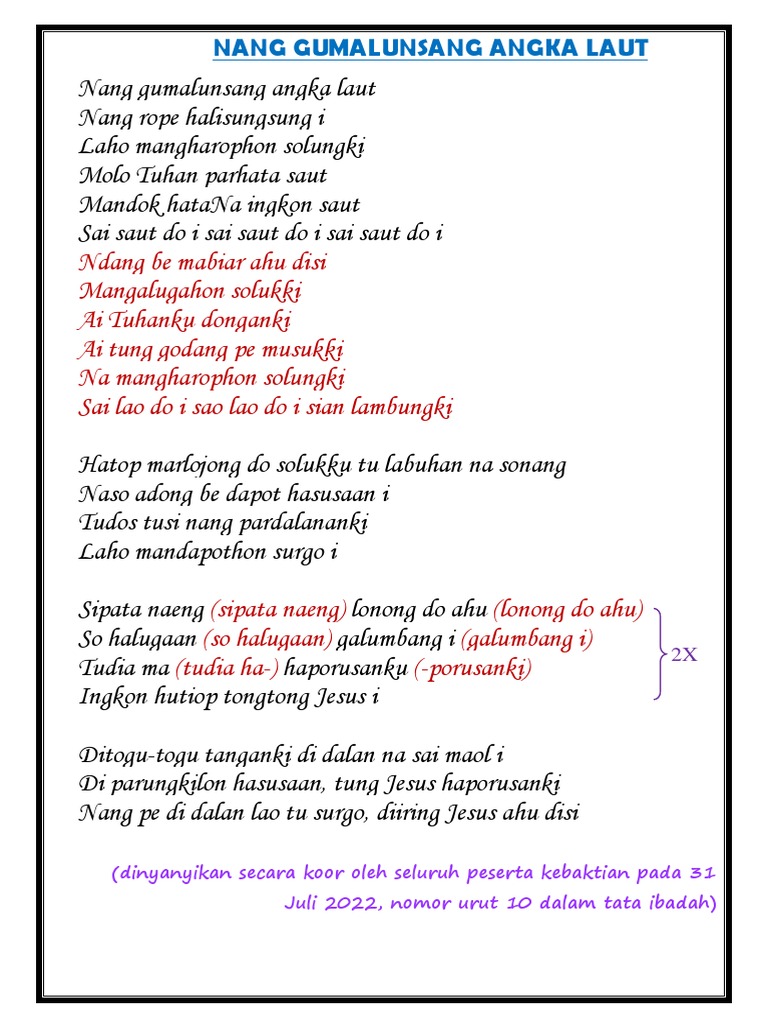 NANG GUMALUNSANG ANGKA LAUT
Nang gumalunsang angka laut
Nang rope halisungsung i
Laho mangharophon solungki
Molo Tuhan parhata saut
Mandok hataNa ingkon saut
Sai saut do i sai saut do i sai saut do i
Ndang be mabiar ahu disi
Mangalugahon solukki
Ai Tuhanku donganki
Ai tung godang pe musukki
Na mangharophon solungki
Sai lao do i sao lao do i sian lambungki
Hatop marlojong do solukku tu labuhan na sonang
Naso adong be dapot hasusaan i
Tudos tusi nang pardalananki
Laho mandapothon surgo i
Sipata naeng (sipata naeng) lonong do ahu (lonong do ahu)
So halugaan (so halugaan) galumbang i (galumbang i)
2X
Tudia ma (tudia ha-) haporusanku (-porusanki)
Ingkon hutiop tongtong Jesus i
Ditogu-togu tanganki di dalan na sai maol i
Di parungkilon hasusaan, tung Jesus haporusanki
Nang pe di dalan lao tu surgo, diiring Jesus ahu disi
(dinyanyikan secara koor oleh seluruh peserta kebaktian pada 31
Juli 2022, nomor urut 10 dalam tata ibadah)